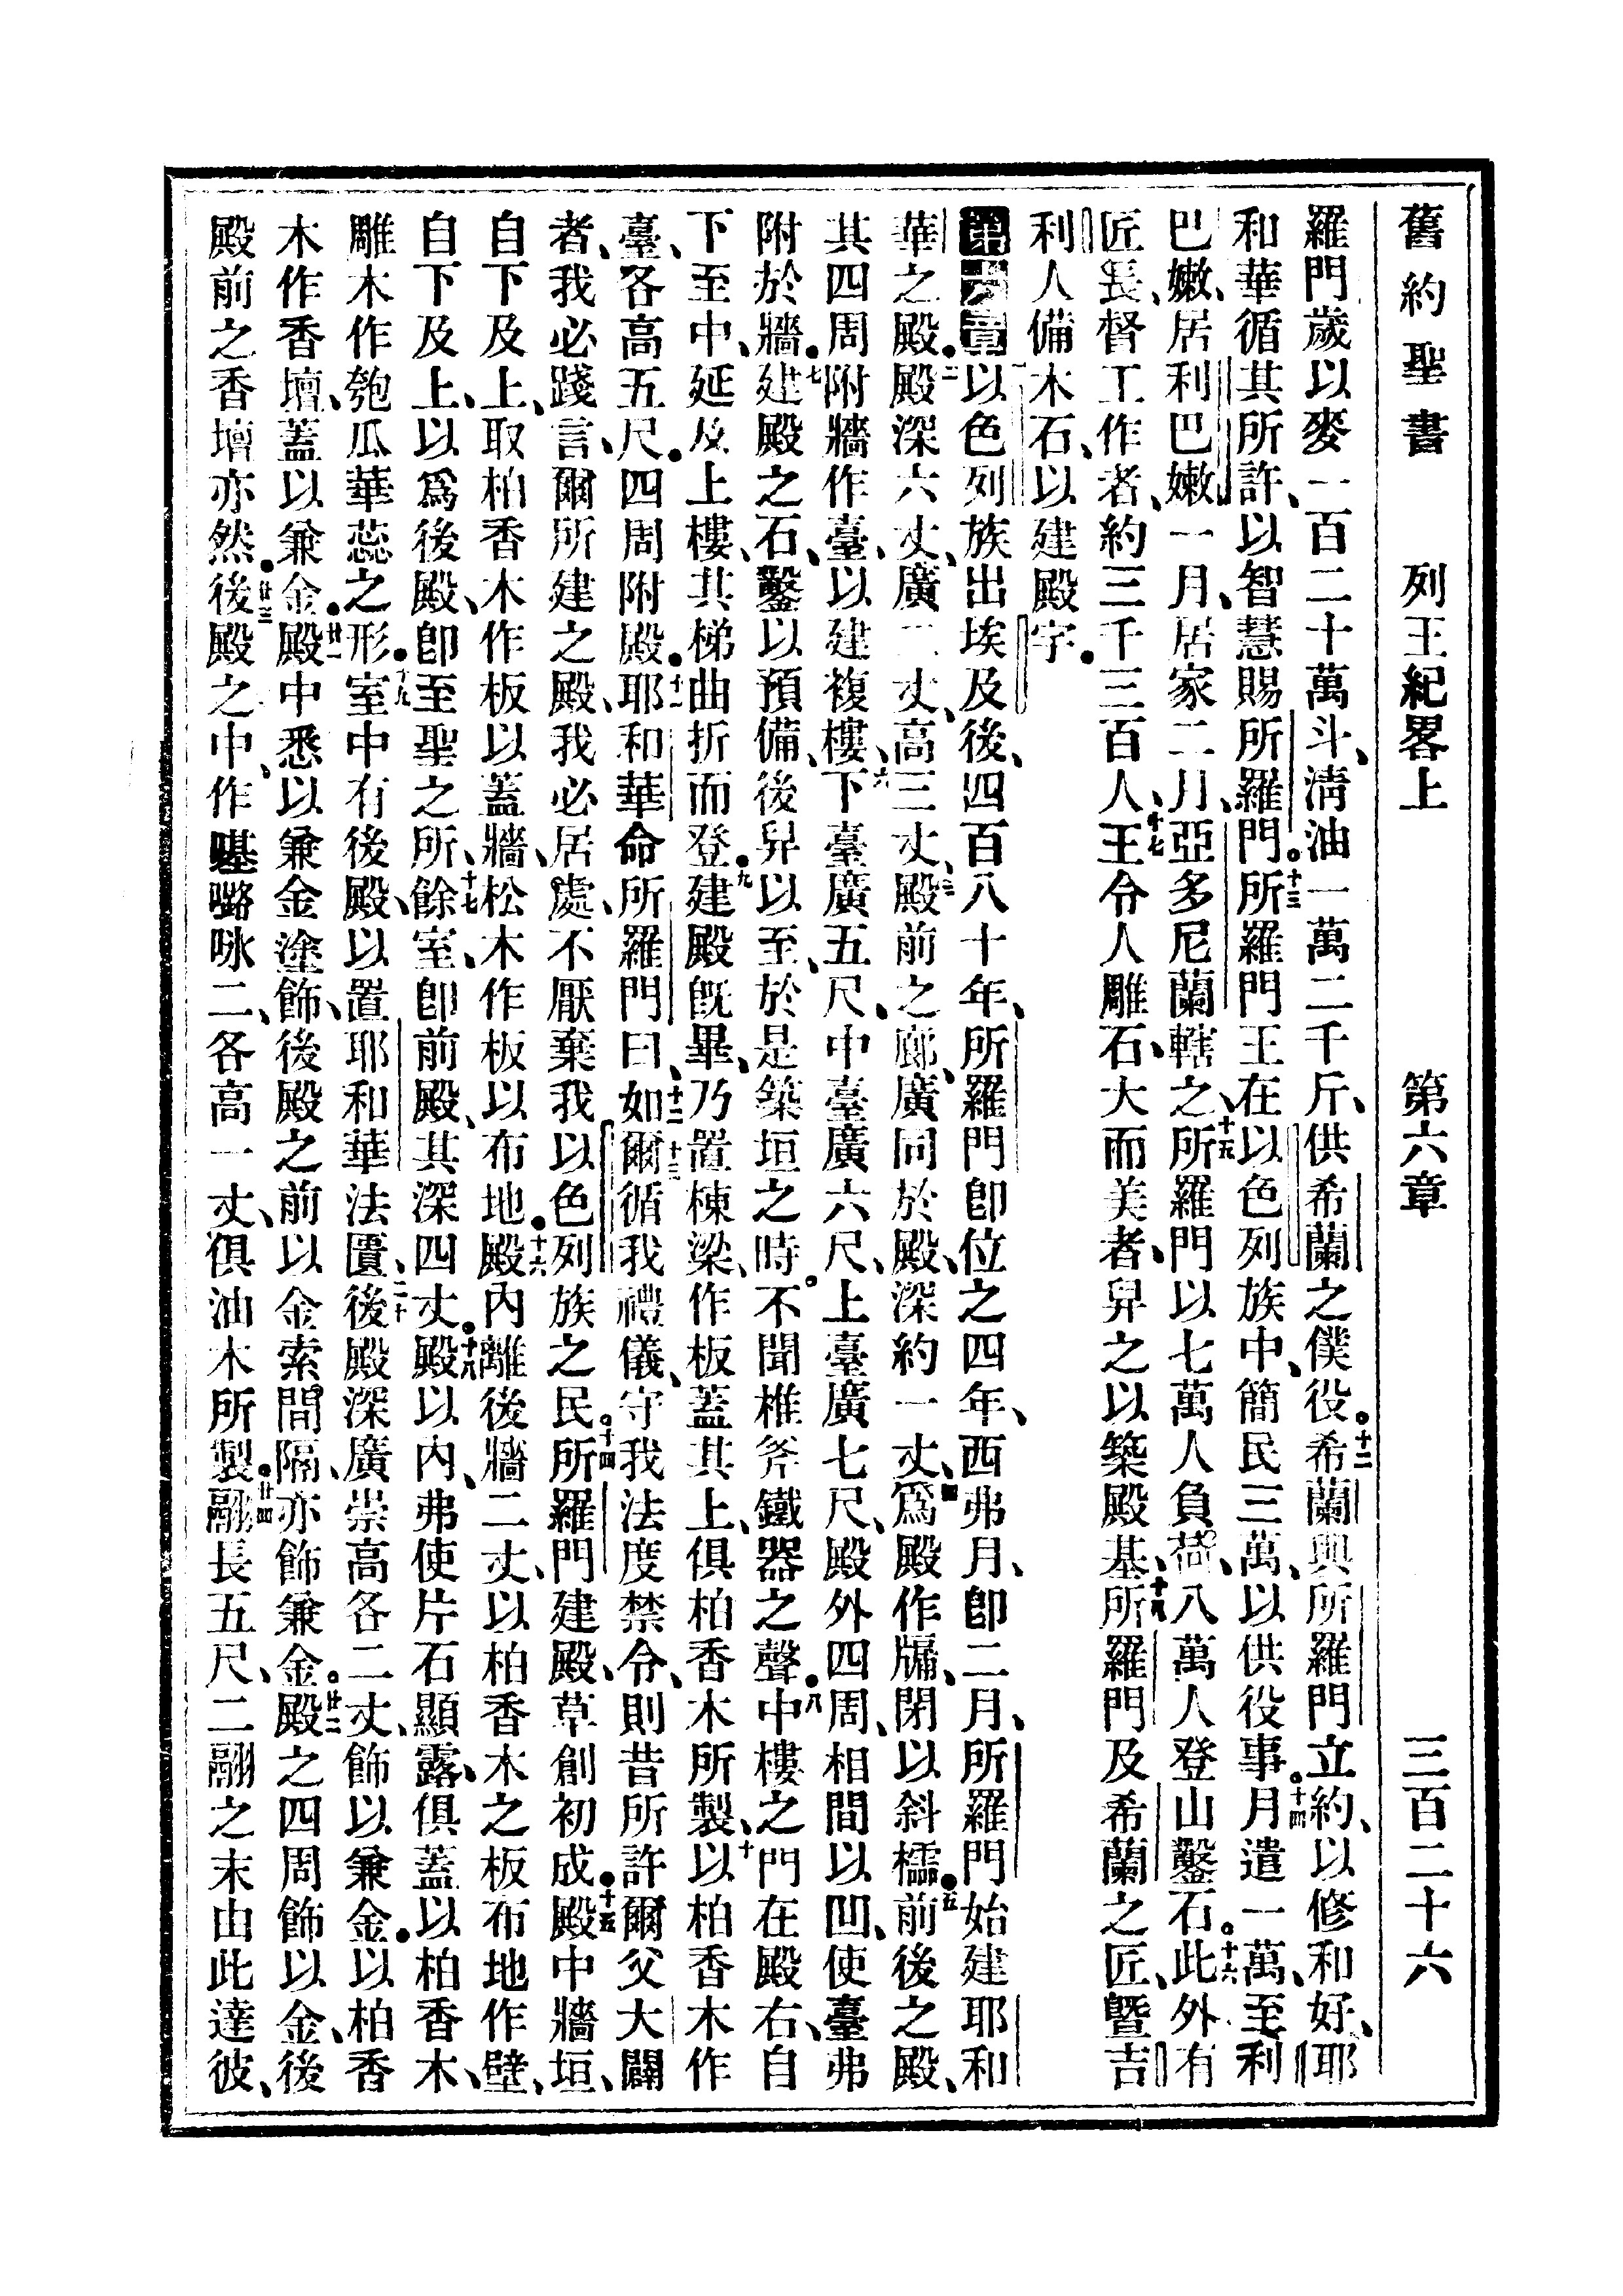 舊約聖書 列王紀畧上 第六章 三百二十六
羅門歲以麥一百二十萬斗、淸油一萬二千斤、供希蘭之僕役。十二希蘭與所羅門立約、以修和好、耶
和華循其所許、以智慧賜所羅門。十三所羅門王在以色列族中、簡民三萬、以供役事。十四月遣一萬、至利
巴嫩、居利巴嫩一月、居家二月、亞多尼蘭轄之、十五所羅門以七萬人負荷、八萬人登山鑿石。十六此外有
匠長、督工作者、約三千三百人、十七王令人雕石、大而美者、舁之以築殿基、十八所羅門及希蘭之匠、曁吉
利人備木石、以建殿宇。
第六章 一以色列族出埃及後、四百八十年、所羅門卽位之四年、西弗月、卽二月、所羅門始建耶和
華之殿。二殿深六丈、廣二丈、高三丈、三殿前之廊、廣同於殿、深約一丈、四爲殿作牖、閉以斜櫺。五前後之殿、
其四周附牆作臺、以建複樓、六下臺廣五尺、中臺廣六尺、上臺廣七尺、殿外四周、相間以凹、使臺弗
附於牆。七建殿之石、鑿以預備、後舁以至、於是築垣之時。不聞椎斧鐵器之聲。八中樓之門在殿右、自
下至中、延及上樓、其梯曲折而登。九建殿旣畢、乃置棟梁、作板蓋其上、俱柏香木所製、十以柏香木作
臺、各高五尺。四周附殿。十一耶和華命所羅門曰、十二如爾循我禮儀、守我法度禁令、則昔所許爾父大闢
者、我必踐言、十三爾所建之殿、我必居處、不厭棄我以色列族之民。十四所羅門建殿、草創初成。十五殿中牆垣、
自下及上、取柏香木作板以蓋牆、松木作板以布地。十六殿內離後牆二丈、以柏香木之板布地作壁、
自下及上、以爲後殿、卽至聖之所、十七餘室、卽前殿、其深四丈。十八殿以內、弗使片石顯露、俱蓋以柏香木、
雕木作匏瓜華蕊之形。十九室中有後殿、以置耶和華法匱、二十後殿深廣崇高各二丈、飾以兼金。以柏香
木作香壇、蓋以兼金。廿一殿中悉以兼金塗飾、後殿之前以金索間隔、亦飾兼金。廿二殿之四周飾以金、後
殿前之香壇亦然。廿三後殿之中、作𠼻𡀔咏二、各高一丈、俱油木所製。廿四翮長五尺、二翮之末由此達彼、